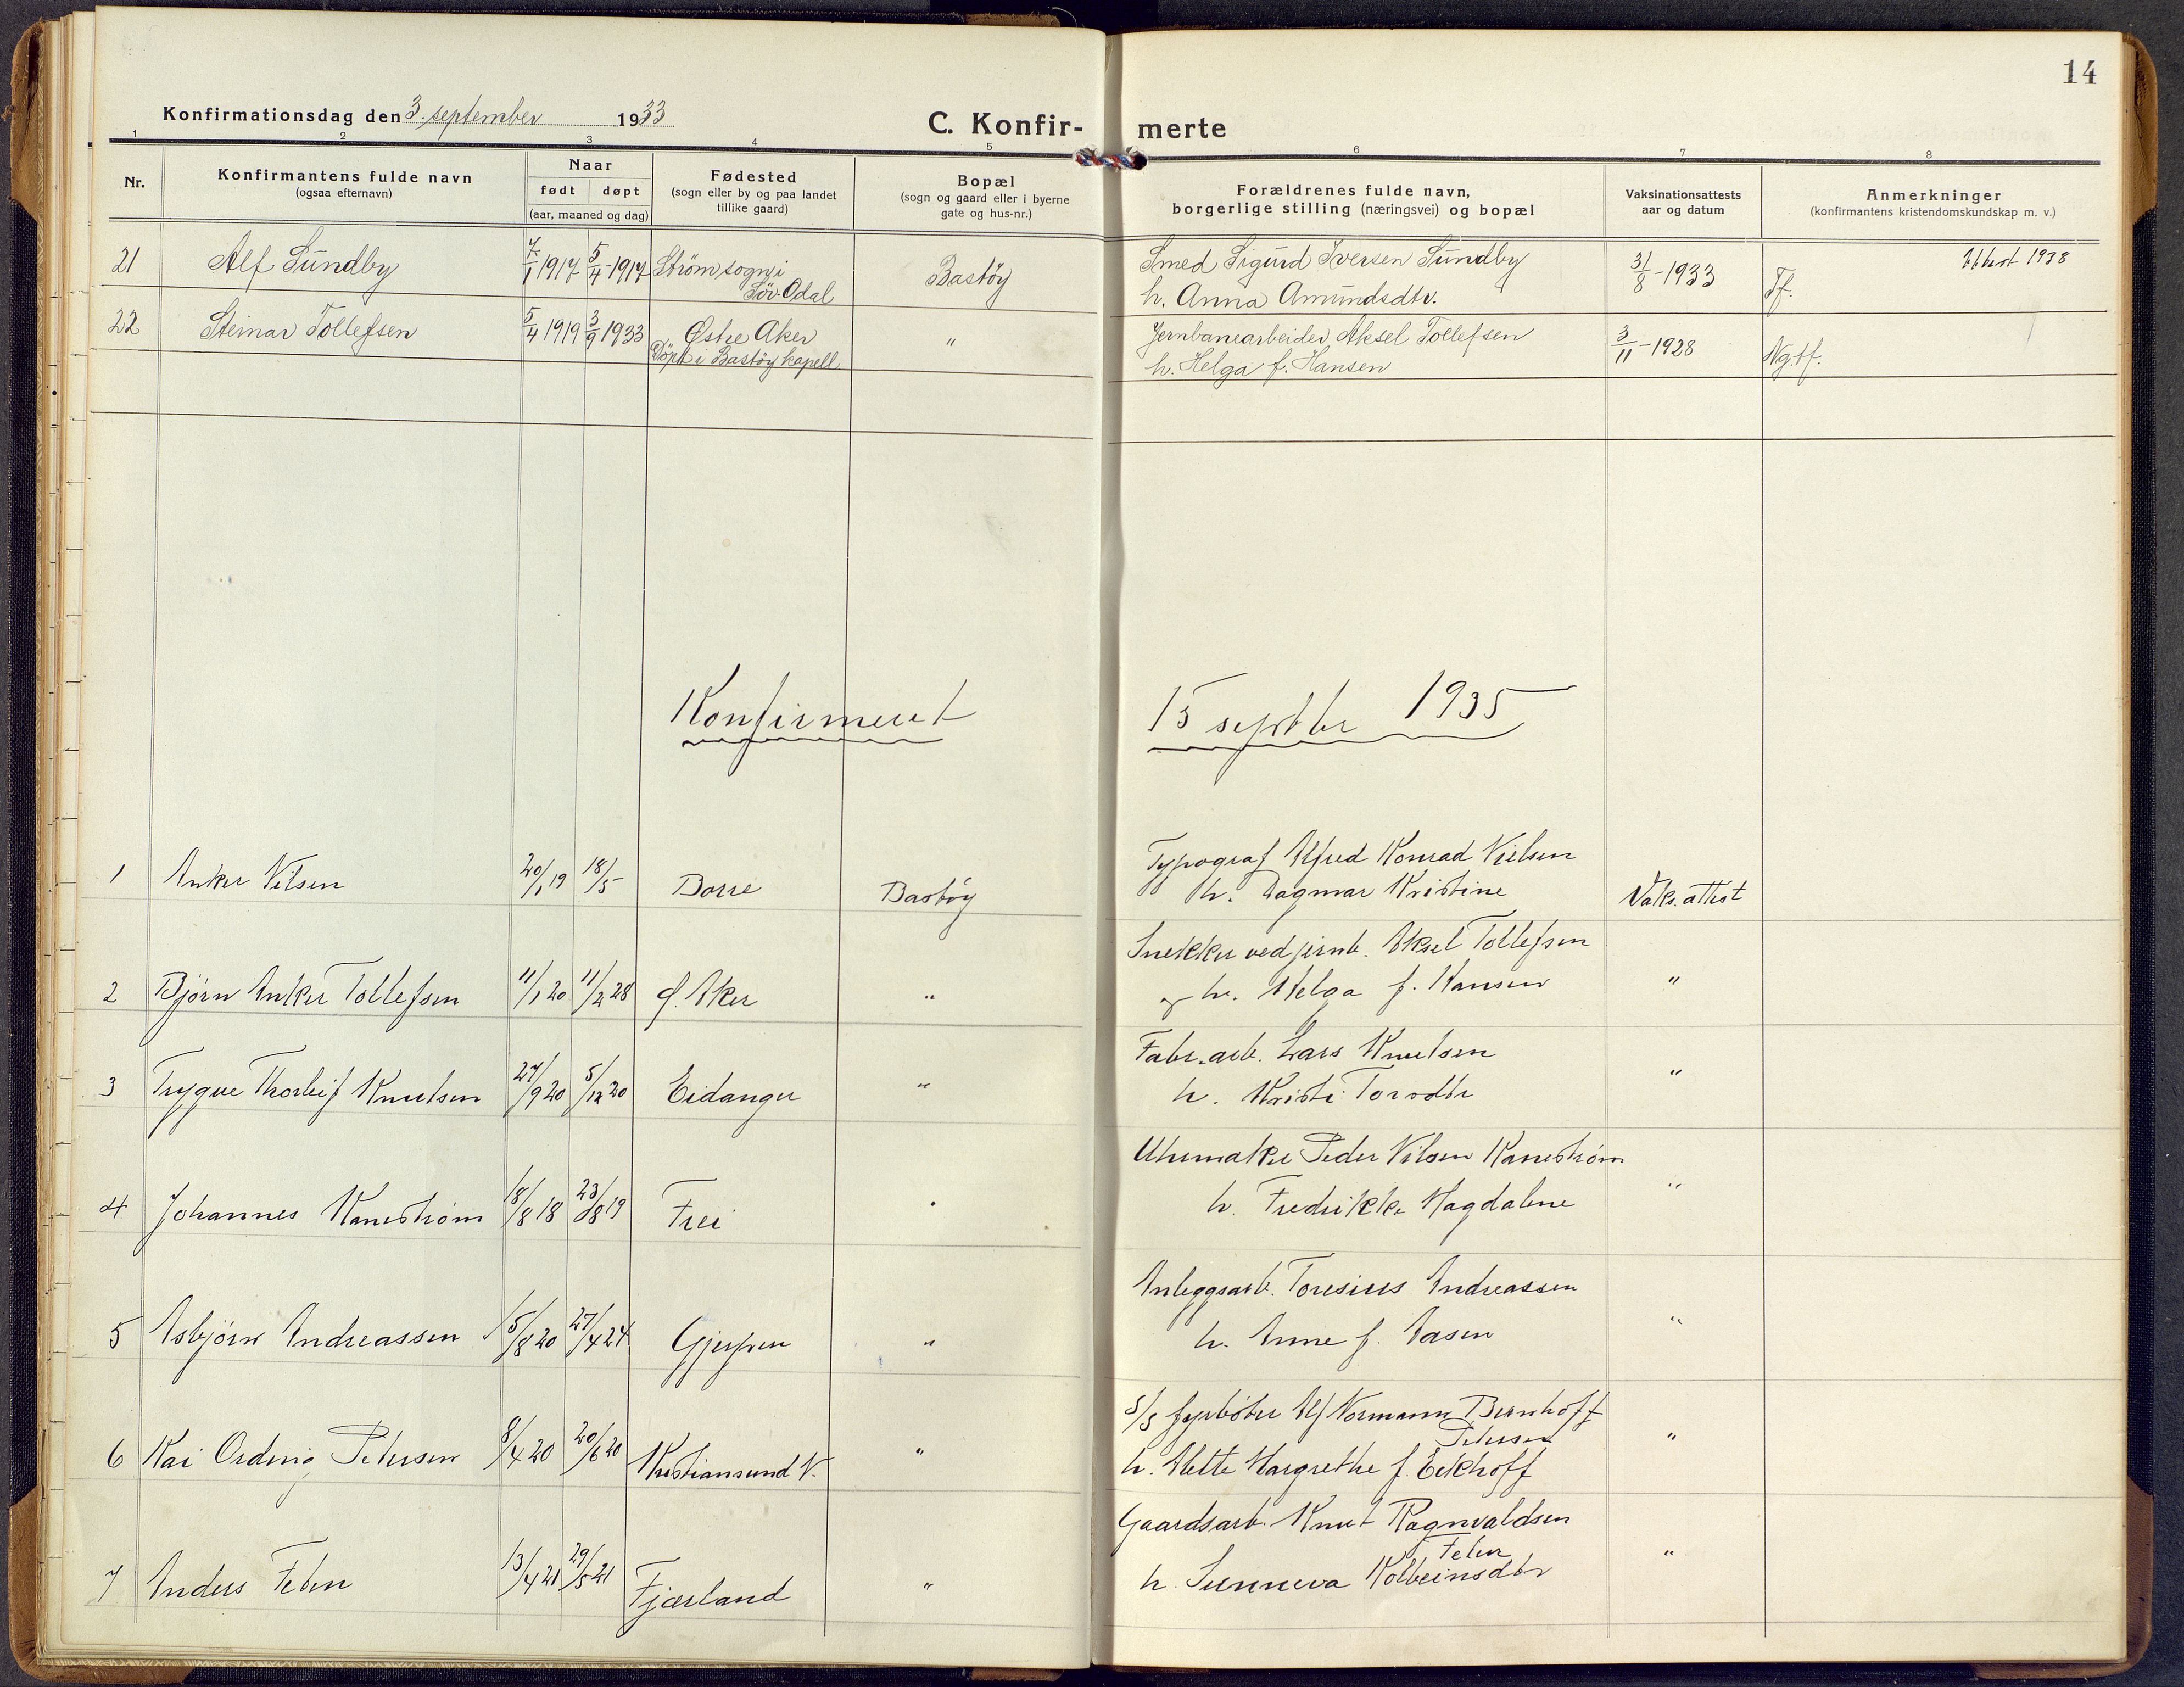 14
Konfirmationsdag den 3. september 1933
C. Konfir- merte
1 2 3 4 5 6 7 8
Nr.
Konfirmantens fulde navn
(ogsaa efternavn)
Naar
født døpt
(aar, maaned og dag)
Fødested
(sogn eller by og paa landet
tillike gaard)
Bopæl
(sogn og gaard eller i byerne
gate og hus-nr.)
Forældrenes fulde navn,
borgerlige stilling (næringsvei) og bopæl
Vaksinationsattests
aar og datum
Anmerkninger
(konfirmantens kristendomskundskap m. v.)
21 Alf Sundby 7/1 1917 5/4-1917 Strøm sogn i Bastöy Smed Sigurd Iversen Sundby 31/8-1933 Tf. 1938
Sör-Odal h. Anna Amundsdtr.
22 Steinar Tollefsen 5/4 1919 3/9 1933 Østre Aker " Jernbanearbeider Aksel Tollefsen 3/11-1928 Ng.tf.
Döpt i Bastöy kapell h. Helga f. Hansen
Konfirmert 15 septbr 1935
1 Anker Nilsen 20/1 19 18/5 Borre Bastöy Typograf Alfred Konrad Nielsen Vaks. attest
h. Dagmar Kristine
2 Björn Anker Tollefsen 11/1 20 11/2 28 Ø. Aker " Snekker ved jernb. Aksel Tollefsen "
h. Helga f. Hansen
3 Trygve Thorleif Knutsen 27/9 20 5/12 20 Eidanger " Fabr. arb. Lars Knutsen "
h. Kristi Torsdtr
4 Johannes Kanestrøm 18/8 18 23/8 19 Frei " Uhrmaker Peder Nilsen Kanestrøm "
h. Fredrikke Magdalene
5 Asbjörn Andreassen 15/8 20 27/4 24 Gjerpen " Anleggsarb. Toresius Andreassen "
h. Anne f. Aasen
6 Kai Ording Petersen 8/4 20 20/6 20 Kristiansund N. " S/S fyrböter Alf Normann Bernhoff "
Petersen
h. Mette Margrethe f. Eckhoff
7 Anders Feten 13/4 21 29/5 21 Fjærland " Gaardsarb. Knut Ragnvaldsen "
Feten
h. Sunneva Kolbeinsdtr